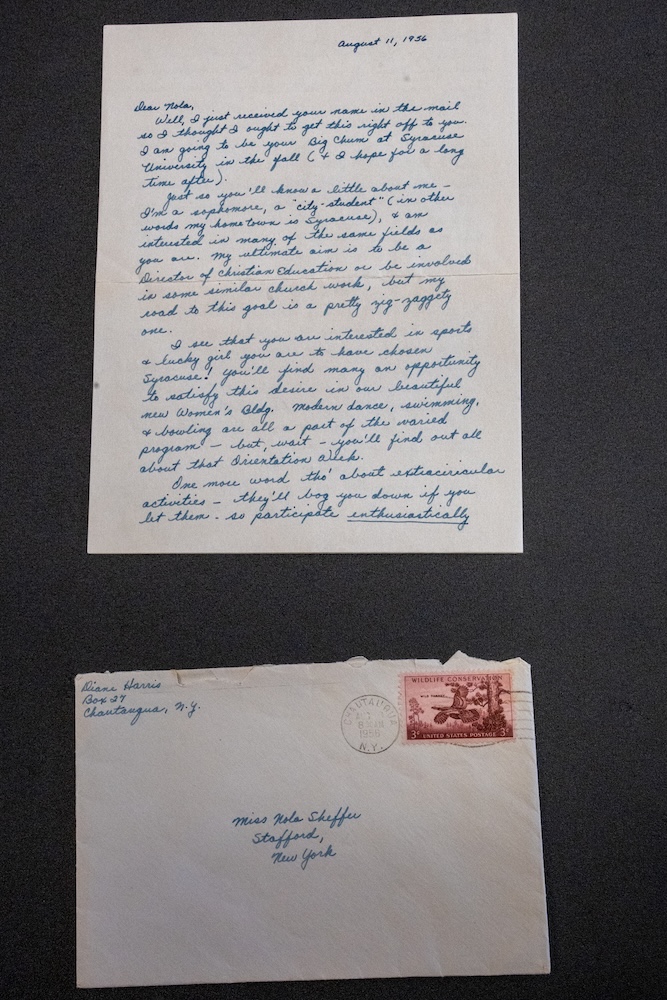 August 11, 1956
Dear Nola,
Well, I just received your name in the mail
so I thought I ought to get this right off to you.
I am going to be your Big Chum at Syracuse
University in the fall (& I hope for a long
time after).
Just so you'll know a little about me –
I'm a sophomore, a "city-student" (in other
words my hometown is Syracuse), & am
interested in many of the same fields as
you are. My ultimate aim is to be a
Director of Christian Education or be involved
in some similar church work, but my
road to this goal is a pretty zig-zaggety
one.
I see that you are interested in sports
& lucky girl you are to have chosen
Syracuse! You'll find many an opportunity
to satisfy this desire in our beautiful
new Women's Bldg. Modern dance, swimming,
& bowling are all a part of the varied
program – but, wait – you'll find out all
about that Orientation Week.
One more word tho' about extracirricular
activities – they'll bog you down if you
let them. so participate enthusiastically
Diane Harris
Box 27
Chautauqua, N.Y.
CHAUTAUQUA
1956
N.Y.
WILDLIFE CONSERVATION
WILD TURKEY
3¢ UNITED STATES POSTAGE 3¢
Miss Nola Sheffer
Stafford,
New York